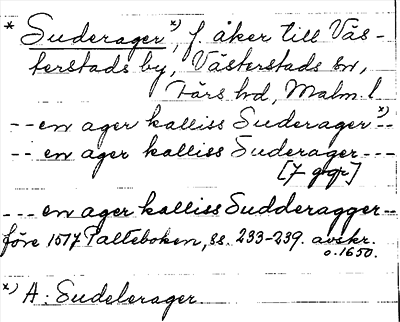 * Suderager x), f. åker till Väs-
terstads by, Västerstads sn,
Färs hd, Malm. l.
-- en ager kalliss Suderager x)
-- en ager kalliss Suderager ---
[7 ggr]
--- en ager kalliss Sudderagger --
före 1517 Palteboken, ss. 233-239. avskr.
o. 1650.
x) A: Sudelerager.